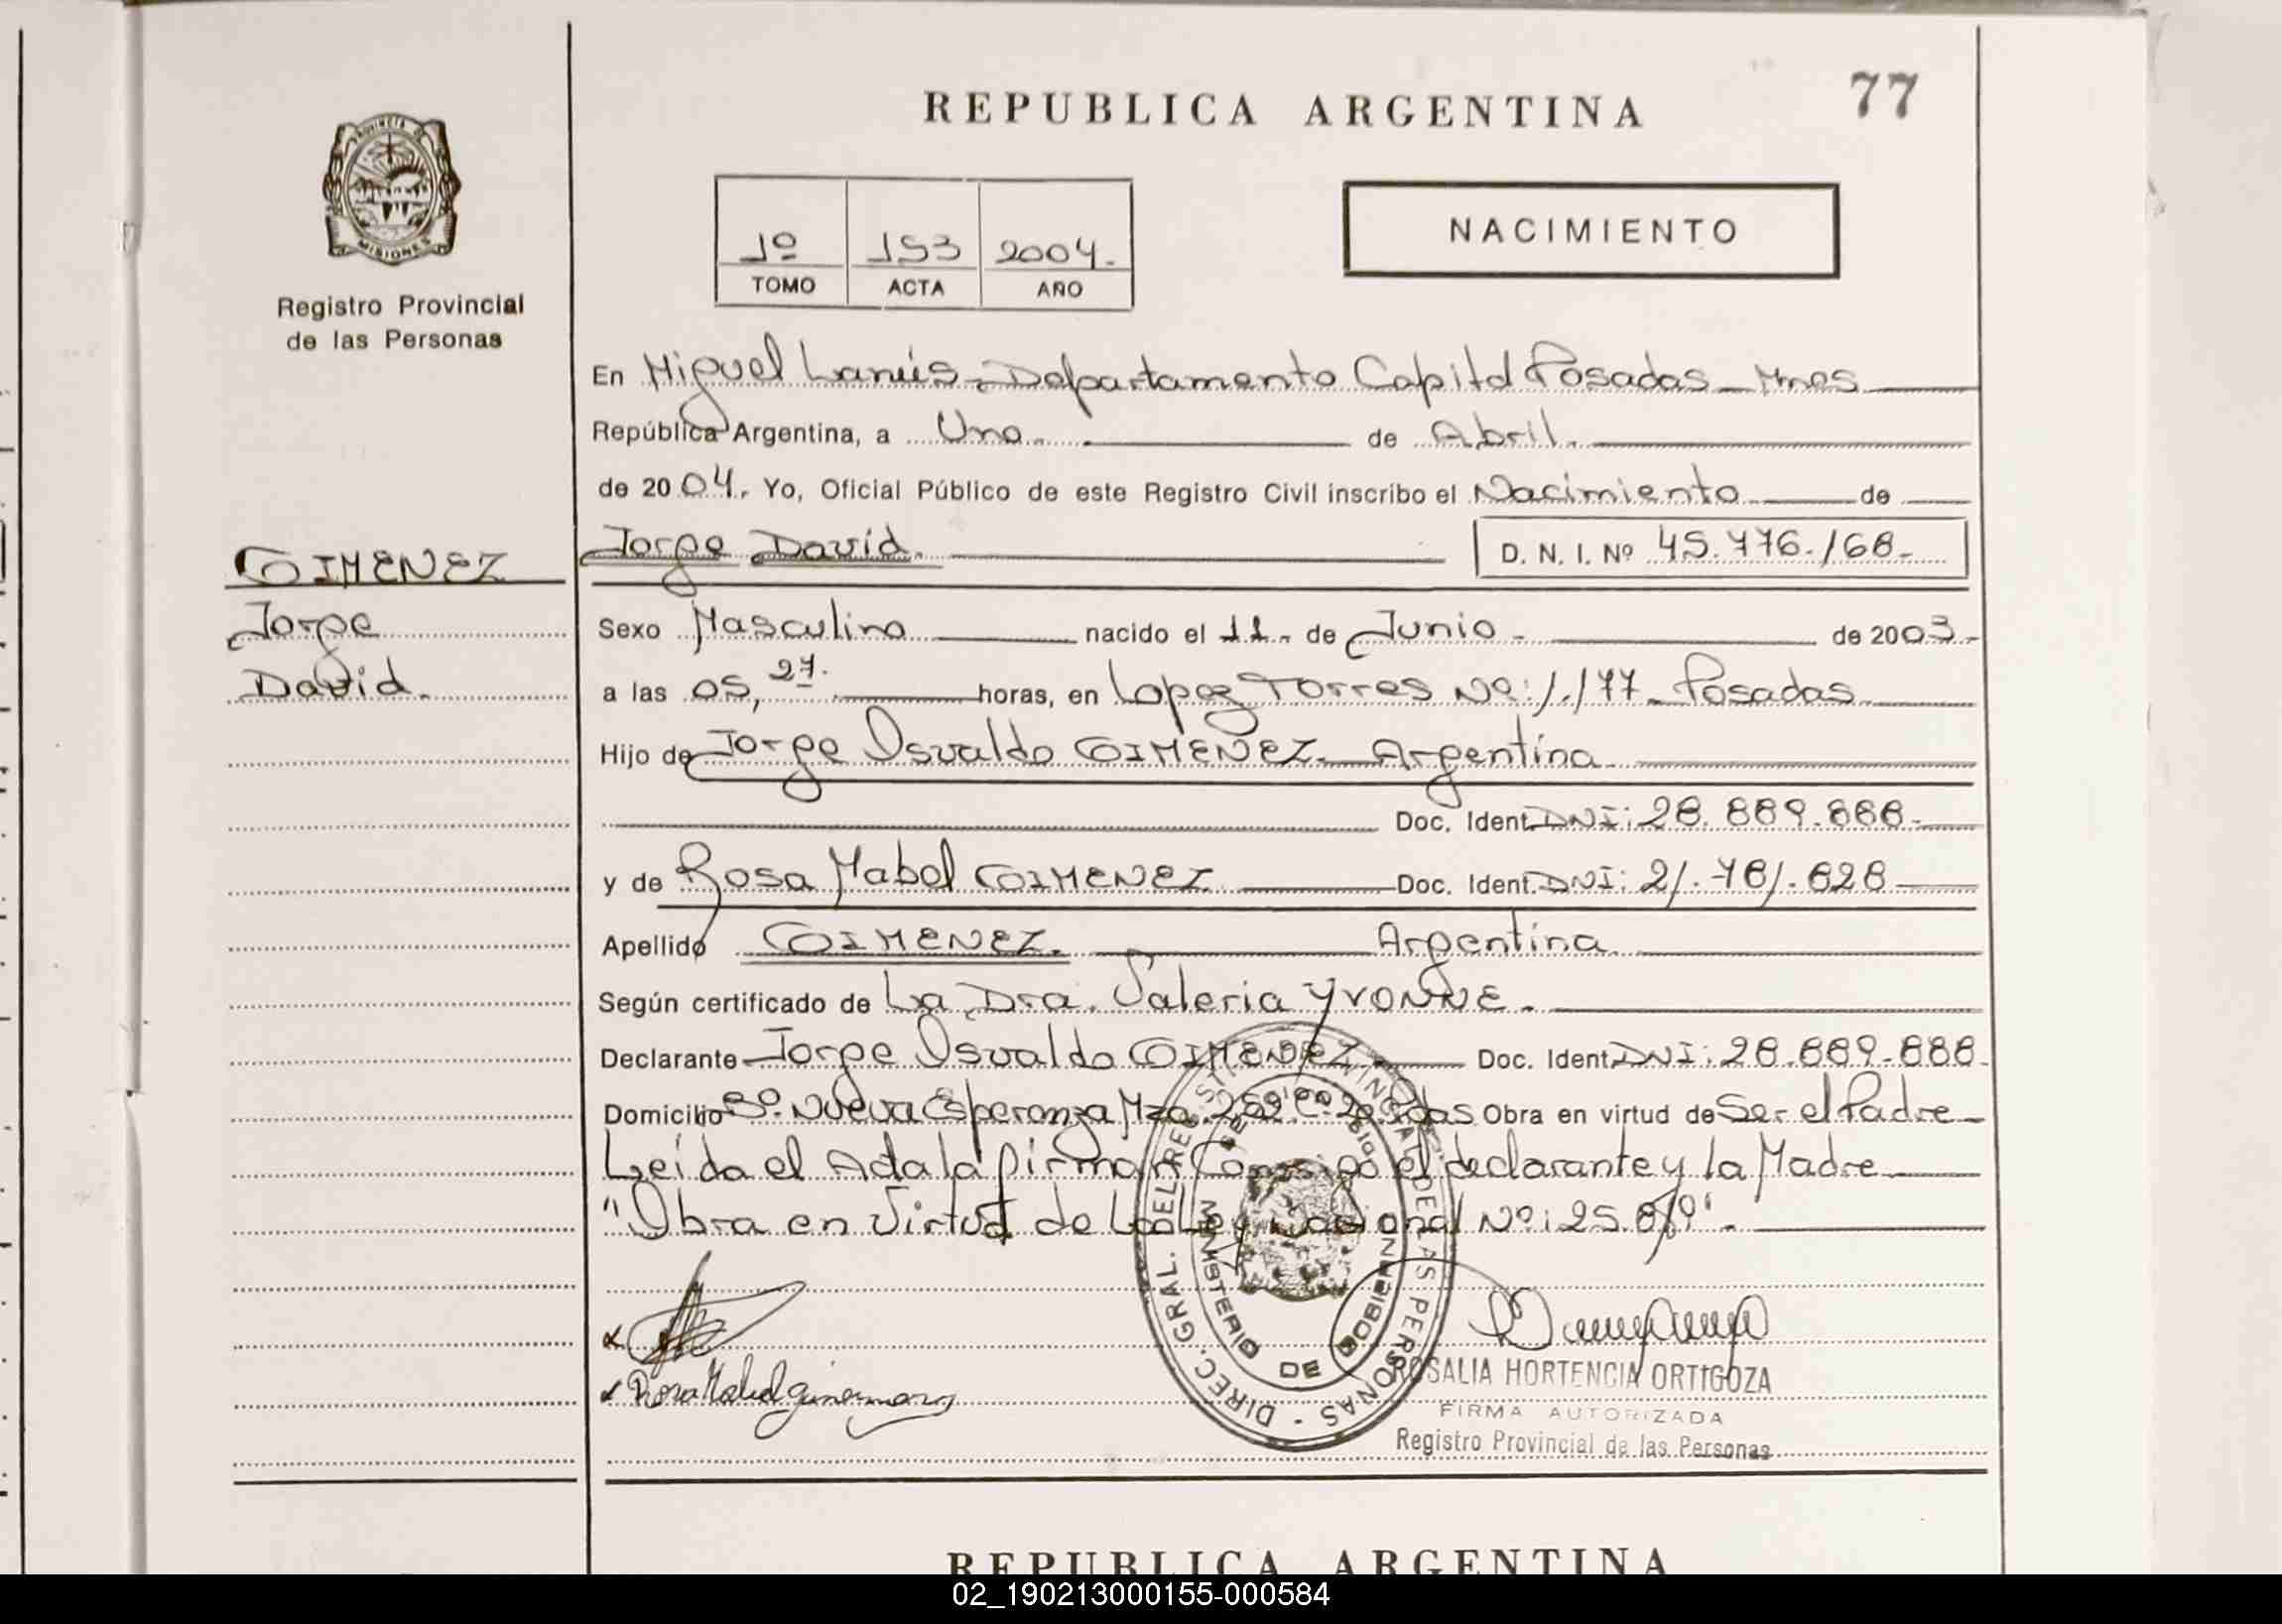 REPUBLICA ARGENTINA
77
PROVINCIA DE MISIONES
Registro Provincial
de las Personas
1º 153 2004.
TOMO ACTA AÑO
NACIMIENTO
En Miguel Lanús - Departamento Capital Posadas - Mnes
República Argentina, a Uno. de Abril.
de 2004. Yo, Oficial Público de este Registro Civil inscribo el Nacimiento de
GIMENEZ
Jorge
David.
Jorge David. D. N. I. Nº 45.776.168.-
Sexo Masculino nacido el 11. de Junio - de 2003.-
a las 05,27. horas, en Lopez Torres Nº: 1.177 - Posadas
Hijo de Jorge Osvaldo GIMENEZ - Argentina
Doc. Ident. DNI: 28.889.888.-
y de Rosa Mabel GIMENEZ Doc. Ident. DNI: 21.781.828
Apellido GIMENEZ. Argentina
Según certificado de La Dra. Valeria YVONNE.
Declarante Jorge Osvaldo GIMENEZ. Doc. Ident. DNI: 28.889.888.
Domicilio Bº. Nueva Esperanza Mza. 252 C. 20 Pdas Obra en virtud de Ser el Padre
Leída el Acta la firman Conmigo el declarante y la Madre
"Obra en Virtud de La Ley Nacional Nº: 25.819".
DIREC. GRAL. DEL REGISTRO PROVINCIAL DE LAS PERSONAS
MINISTERIO DE GOBIERNO
Rosa Mabel
ROSALIA HORTENCIA ORTIGOZA
FIRMA AUTORIZADA
Registro Provincial de las Personas
REPUBLICA ARGENTINA
02_190213000155-000584